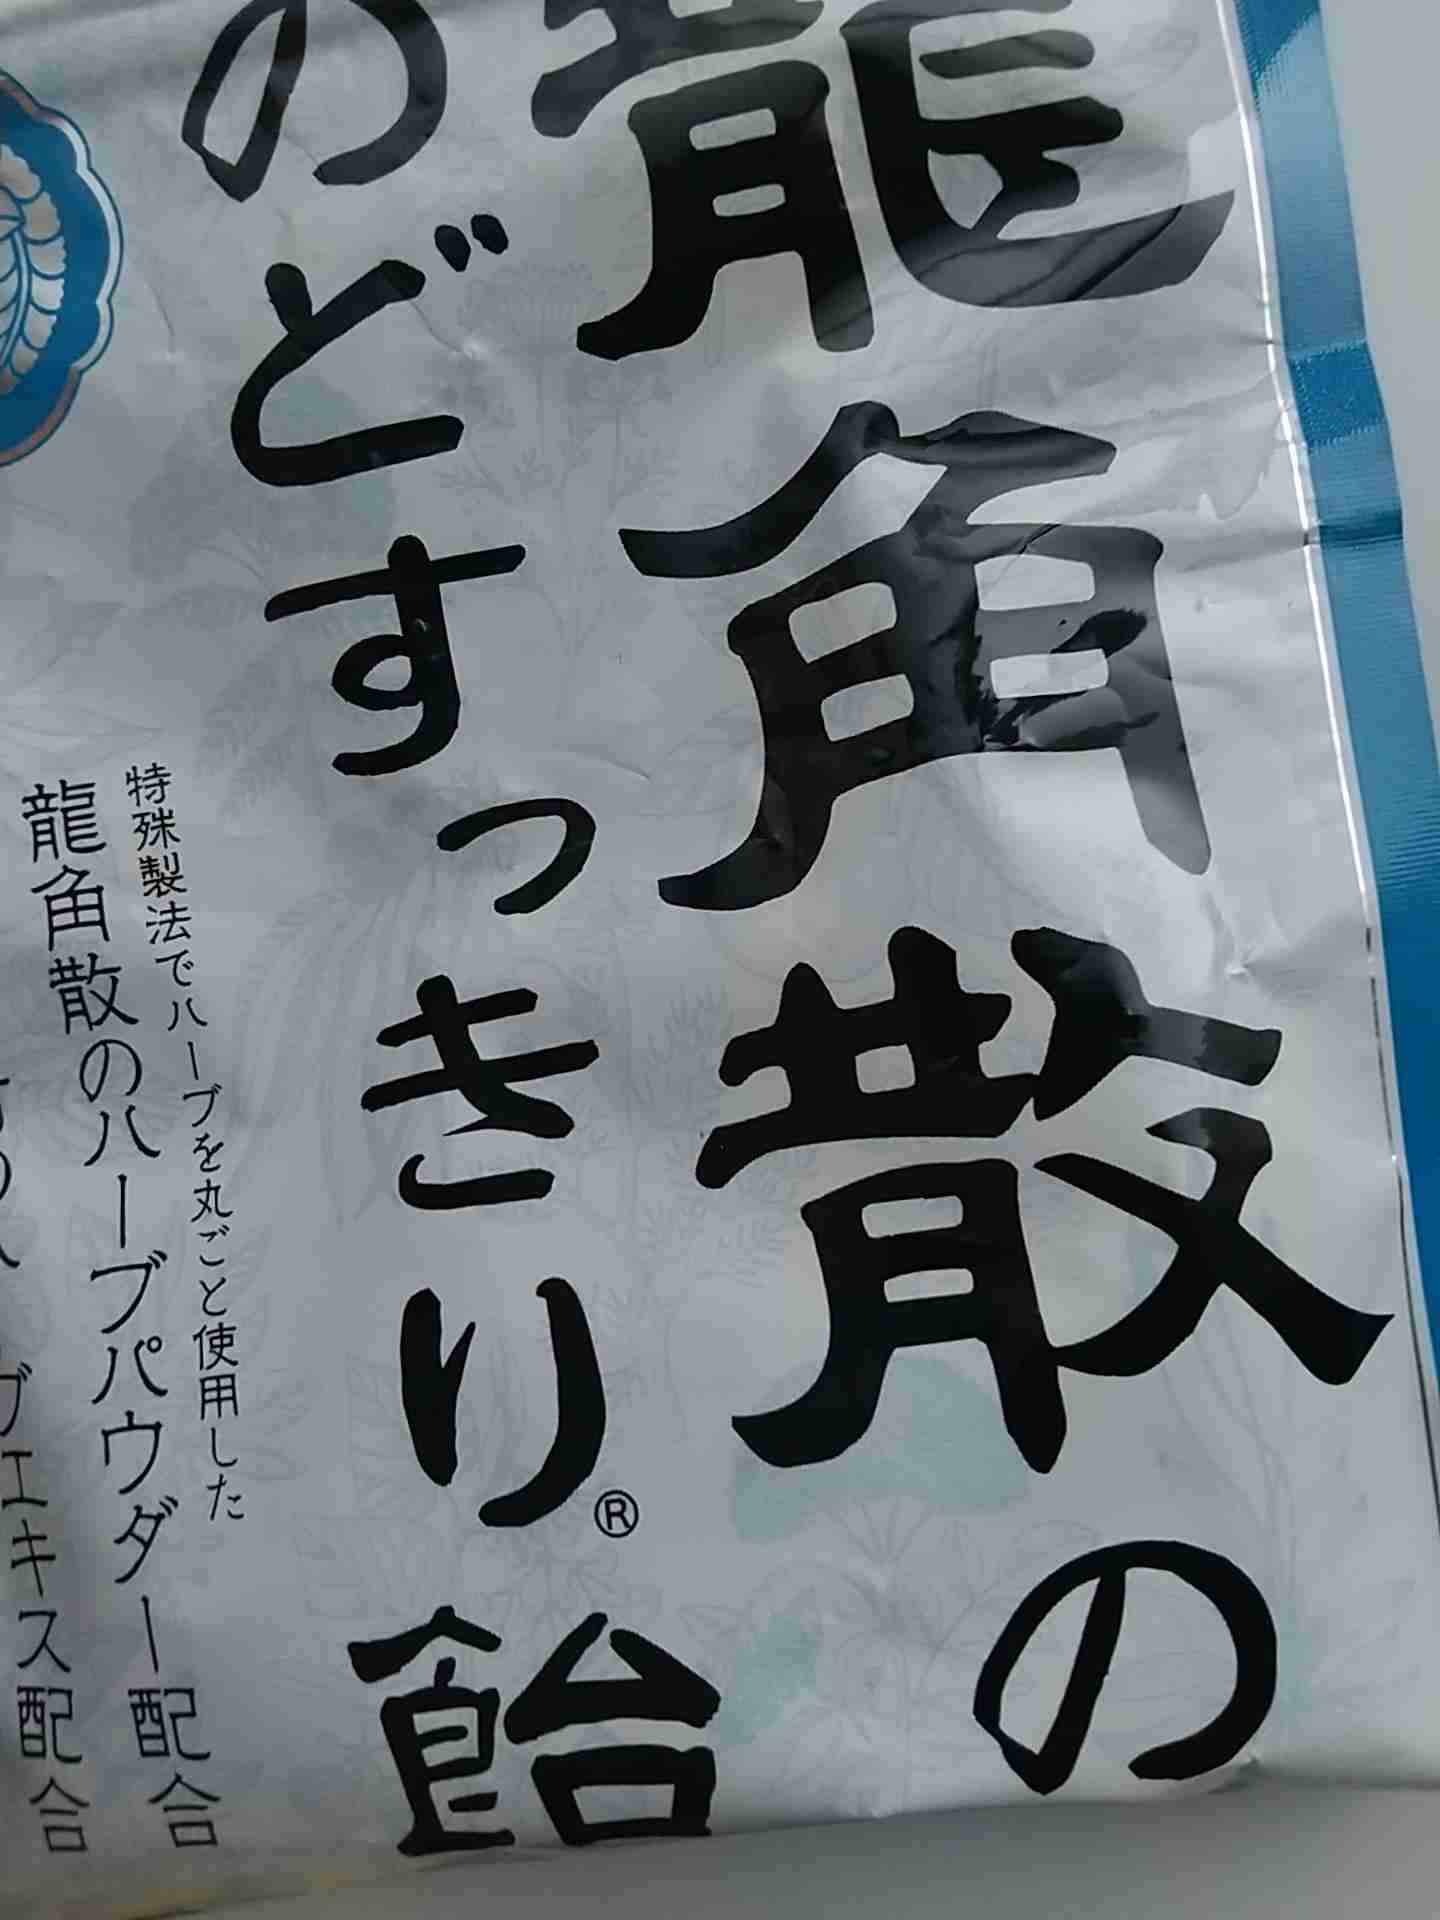 龍角散の
のどすっきり®飴
特殊製法でハーブを丸ごと使用した
龍角散のハーブパウダー配合
ブエキス配合